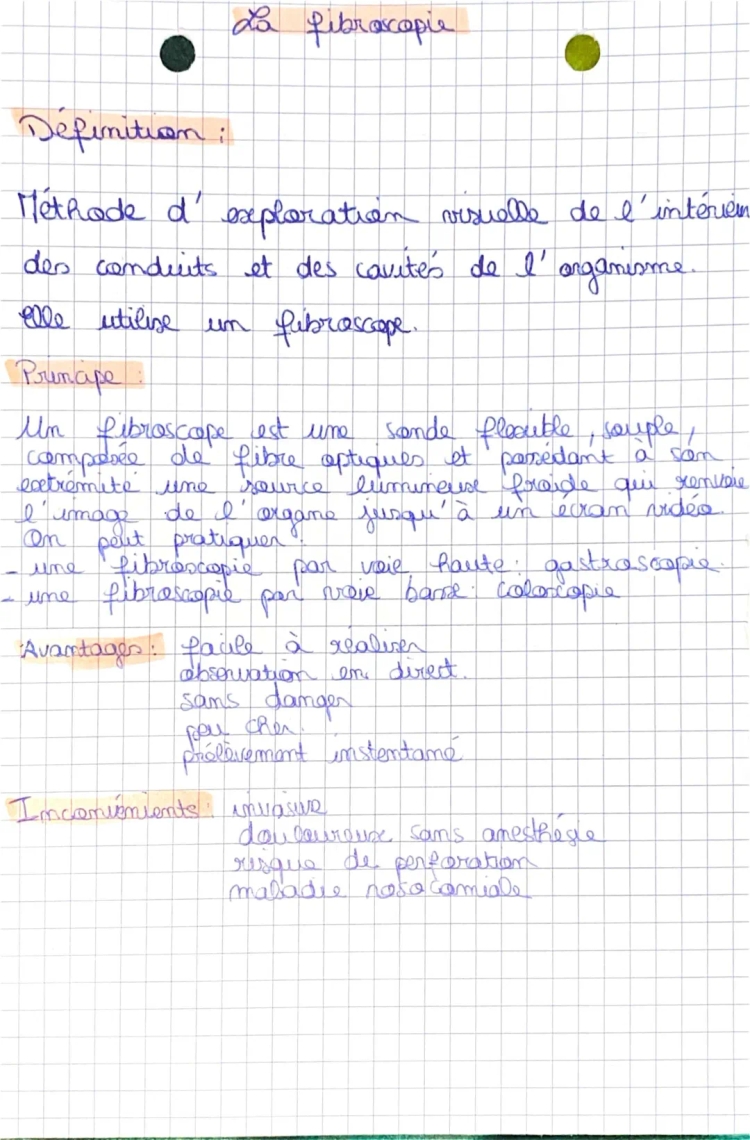 La fibroscopie
Définition :
Méthode d'exploration visuelle de l'intérieur
des conduits et des cavités de l'organisme.
elle utilise un fibroscope.
Principe :
Un fibroscope est une sonde flexible, souple,
composée de fibre optiques et possédant à son
extrémité une source lumineuse froide qui renvoie
l'image de l'organe jusqu'à un ecran vidéo.
On peut pratiquer :
- une fibroscopie par voie haute : gastroscopie.
- une fibroscopie par voie basse : coloscopie
Avantages : facile à réaliser
observation en direct.
sans danger
peu cher.
prélèvement instentané
Inconvénients : invasive
douloureuse sans anesthésie
risque de perforation
maladie nosocomiale